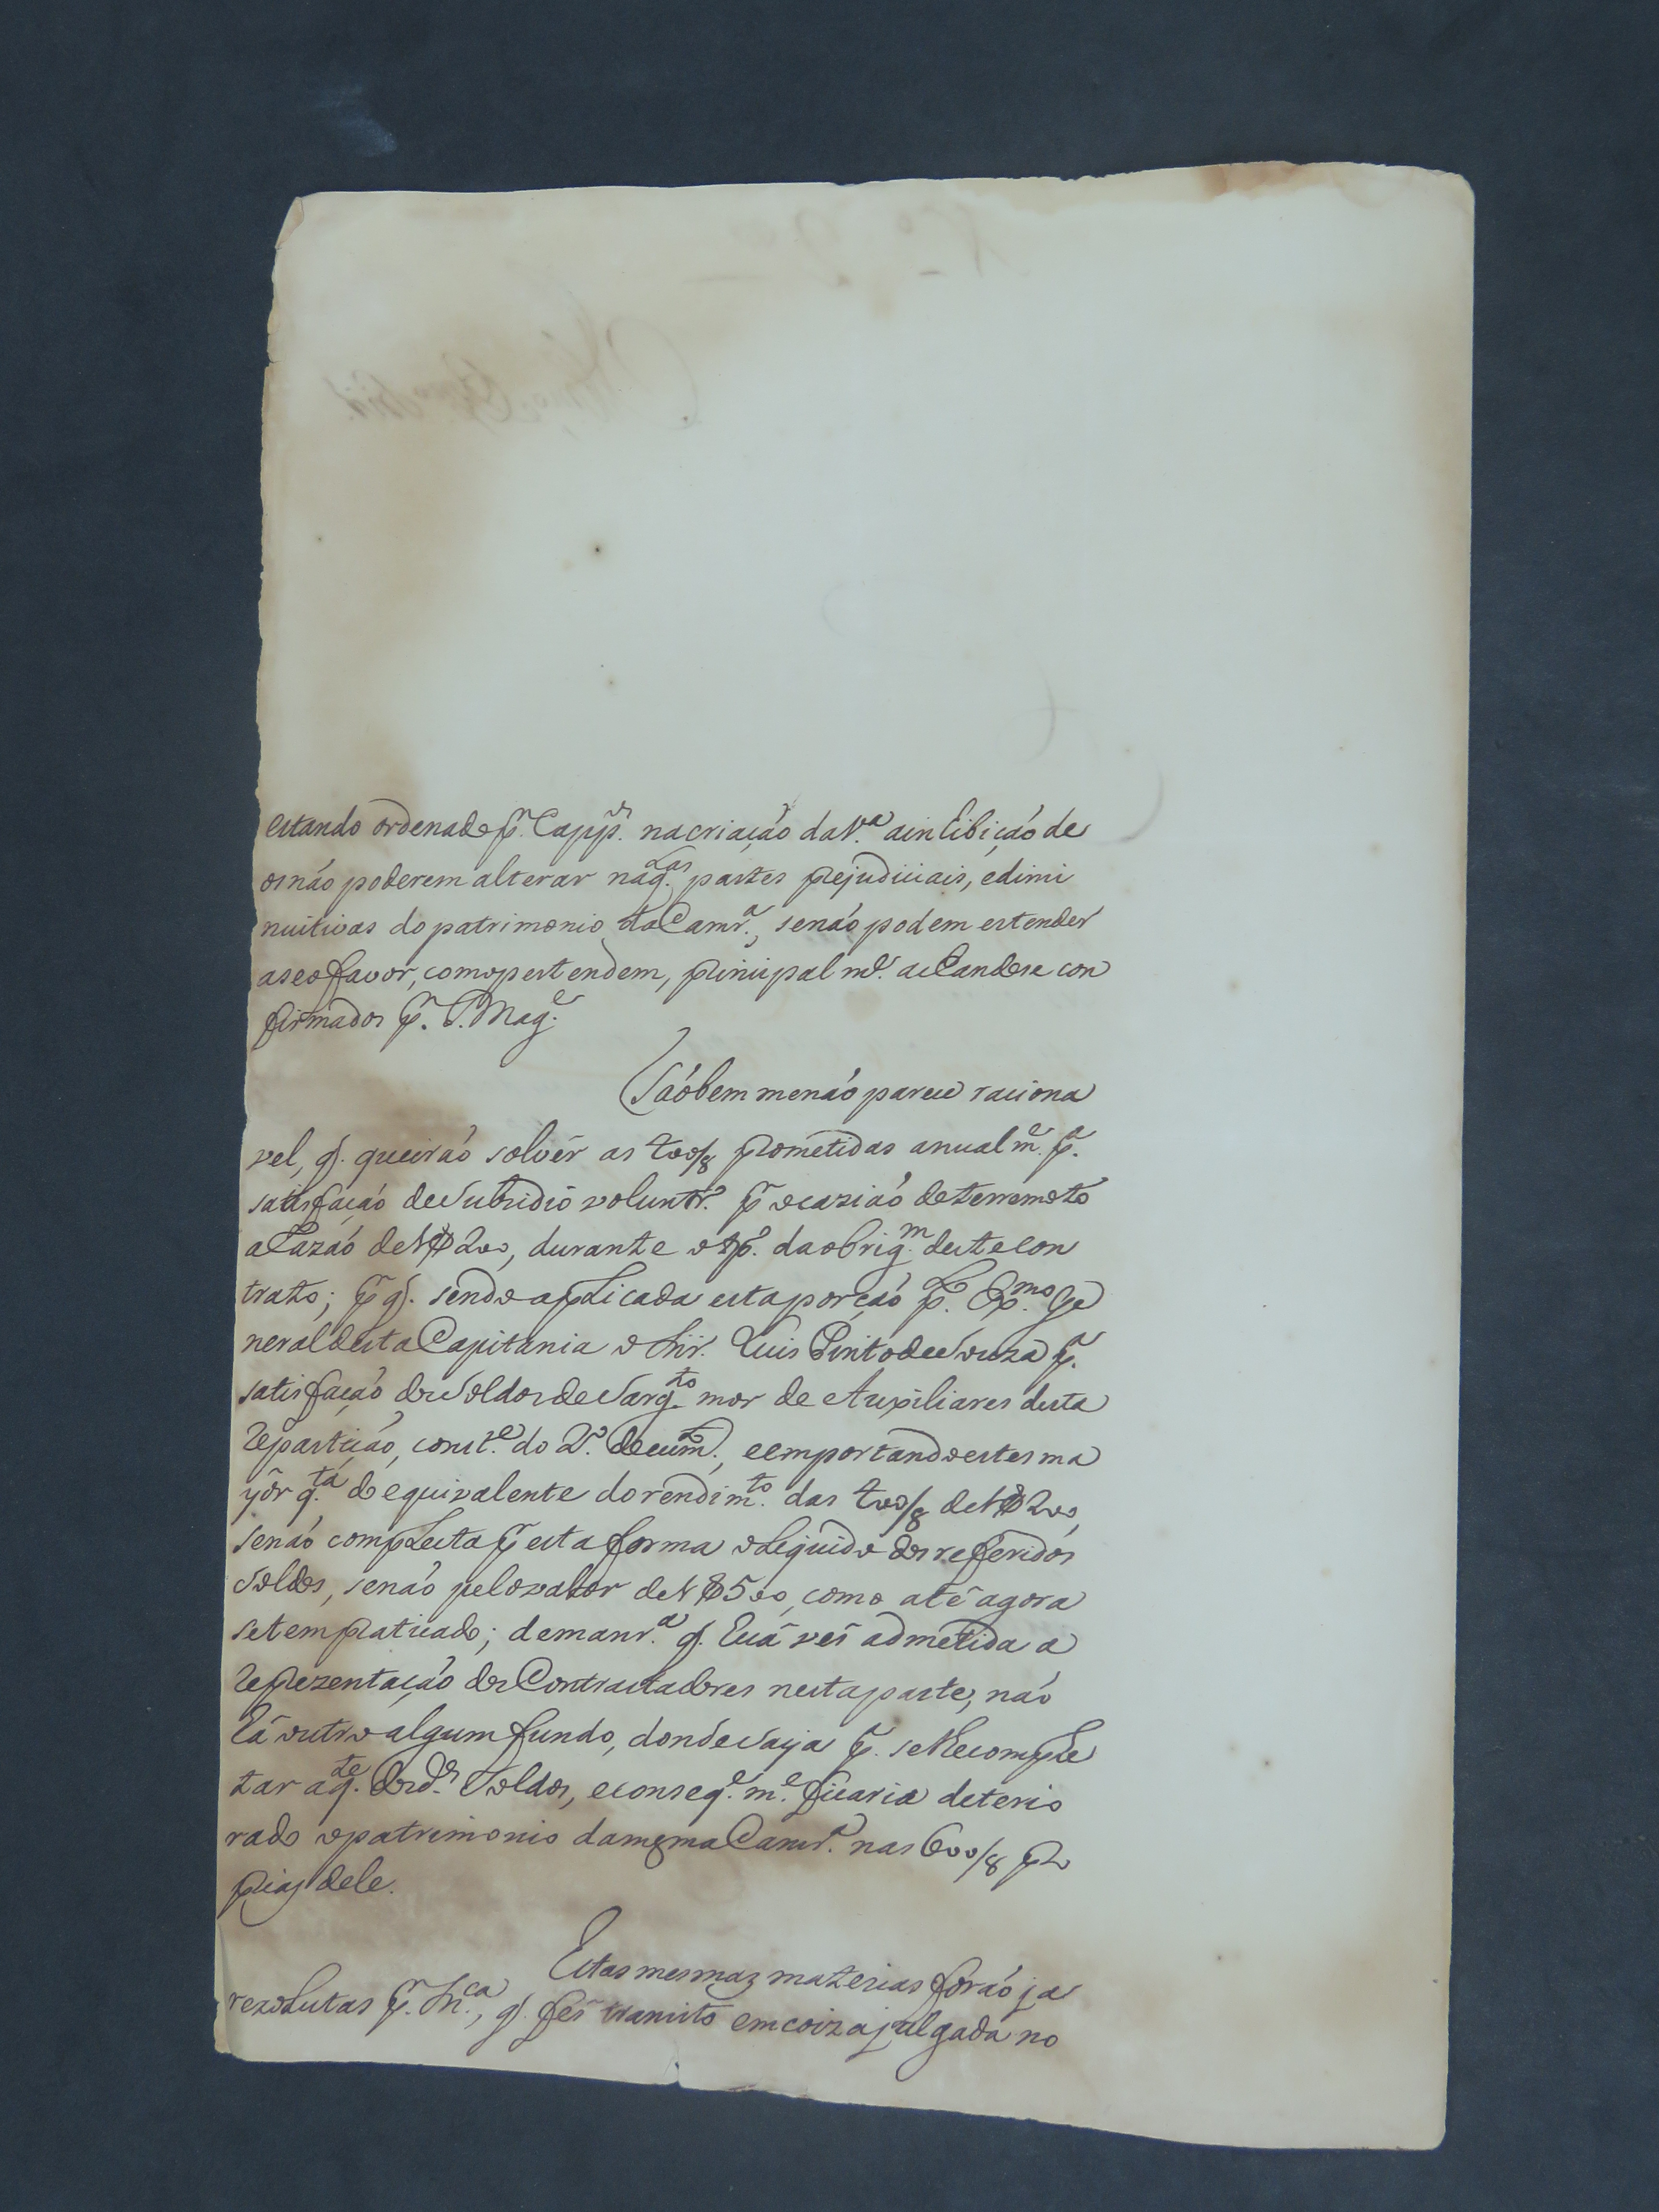 estando ordenado p.r Capp.os na criação da V.a a inhibição de
os não poderem alterar naq.las partes prejudiciais, e dimi
nuitivas do patrimonio da Camr.a, senão podem estender
a seo favor, como pertendem, principalm.e achandose con
firmados p.r S. Mag.e
Taóbem me não parece raciona
vel, q. queirão solvêr as 400/8 prometidas anualm.e p.a
satisfação do Subsidio volunt.r.o p.r ocazião do terremoto
a razão de 1$200, durante o tp.o da obrig.m deste con
trato; p.r q. sendo aplicada esta porção p.lo Ex.mo Ge
neral desta Capitania o Snr. Luis Pinto de Souza p.a
satisfação dos Soldos do Sarg.to mor de Auxiliares desta
Repartição, const.e do D. docum.to, e emportando estes ma
yór q.ta do equivalente do rendim.to das 400/8 de 1$200,
senão completa p.r esta forma o liquido dos referidos
Soldos, senão pelo valor de 1$500, como até agora
se tem praticado; de manr.a q. huã vês admetida a
reprezentação dos Contractadores nesta parte, não
há outro algum fundo, donde saya p.a se Recomple
tar a q.te dos d.os Soldos, e conseq.e m.e ficaria deterio
rado o patrimonio da mesma Camr.a nas 600/8 pro
prias dele.
Estas mesmas materias forão ja
rezolutas p.r Sn.ca, q. fes tranzito em coiza julgada no